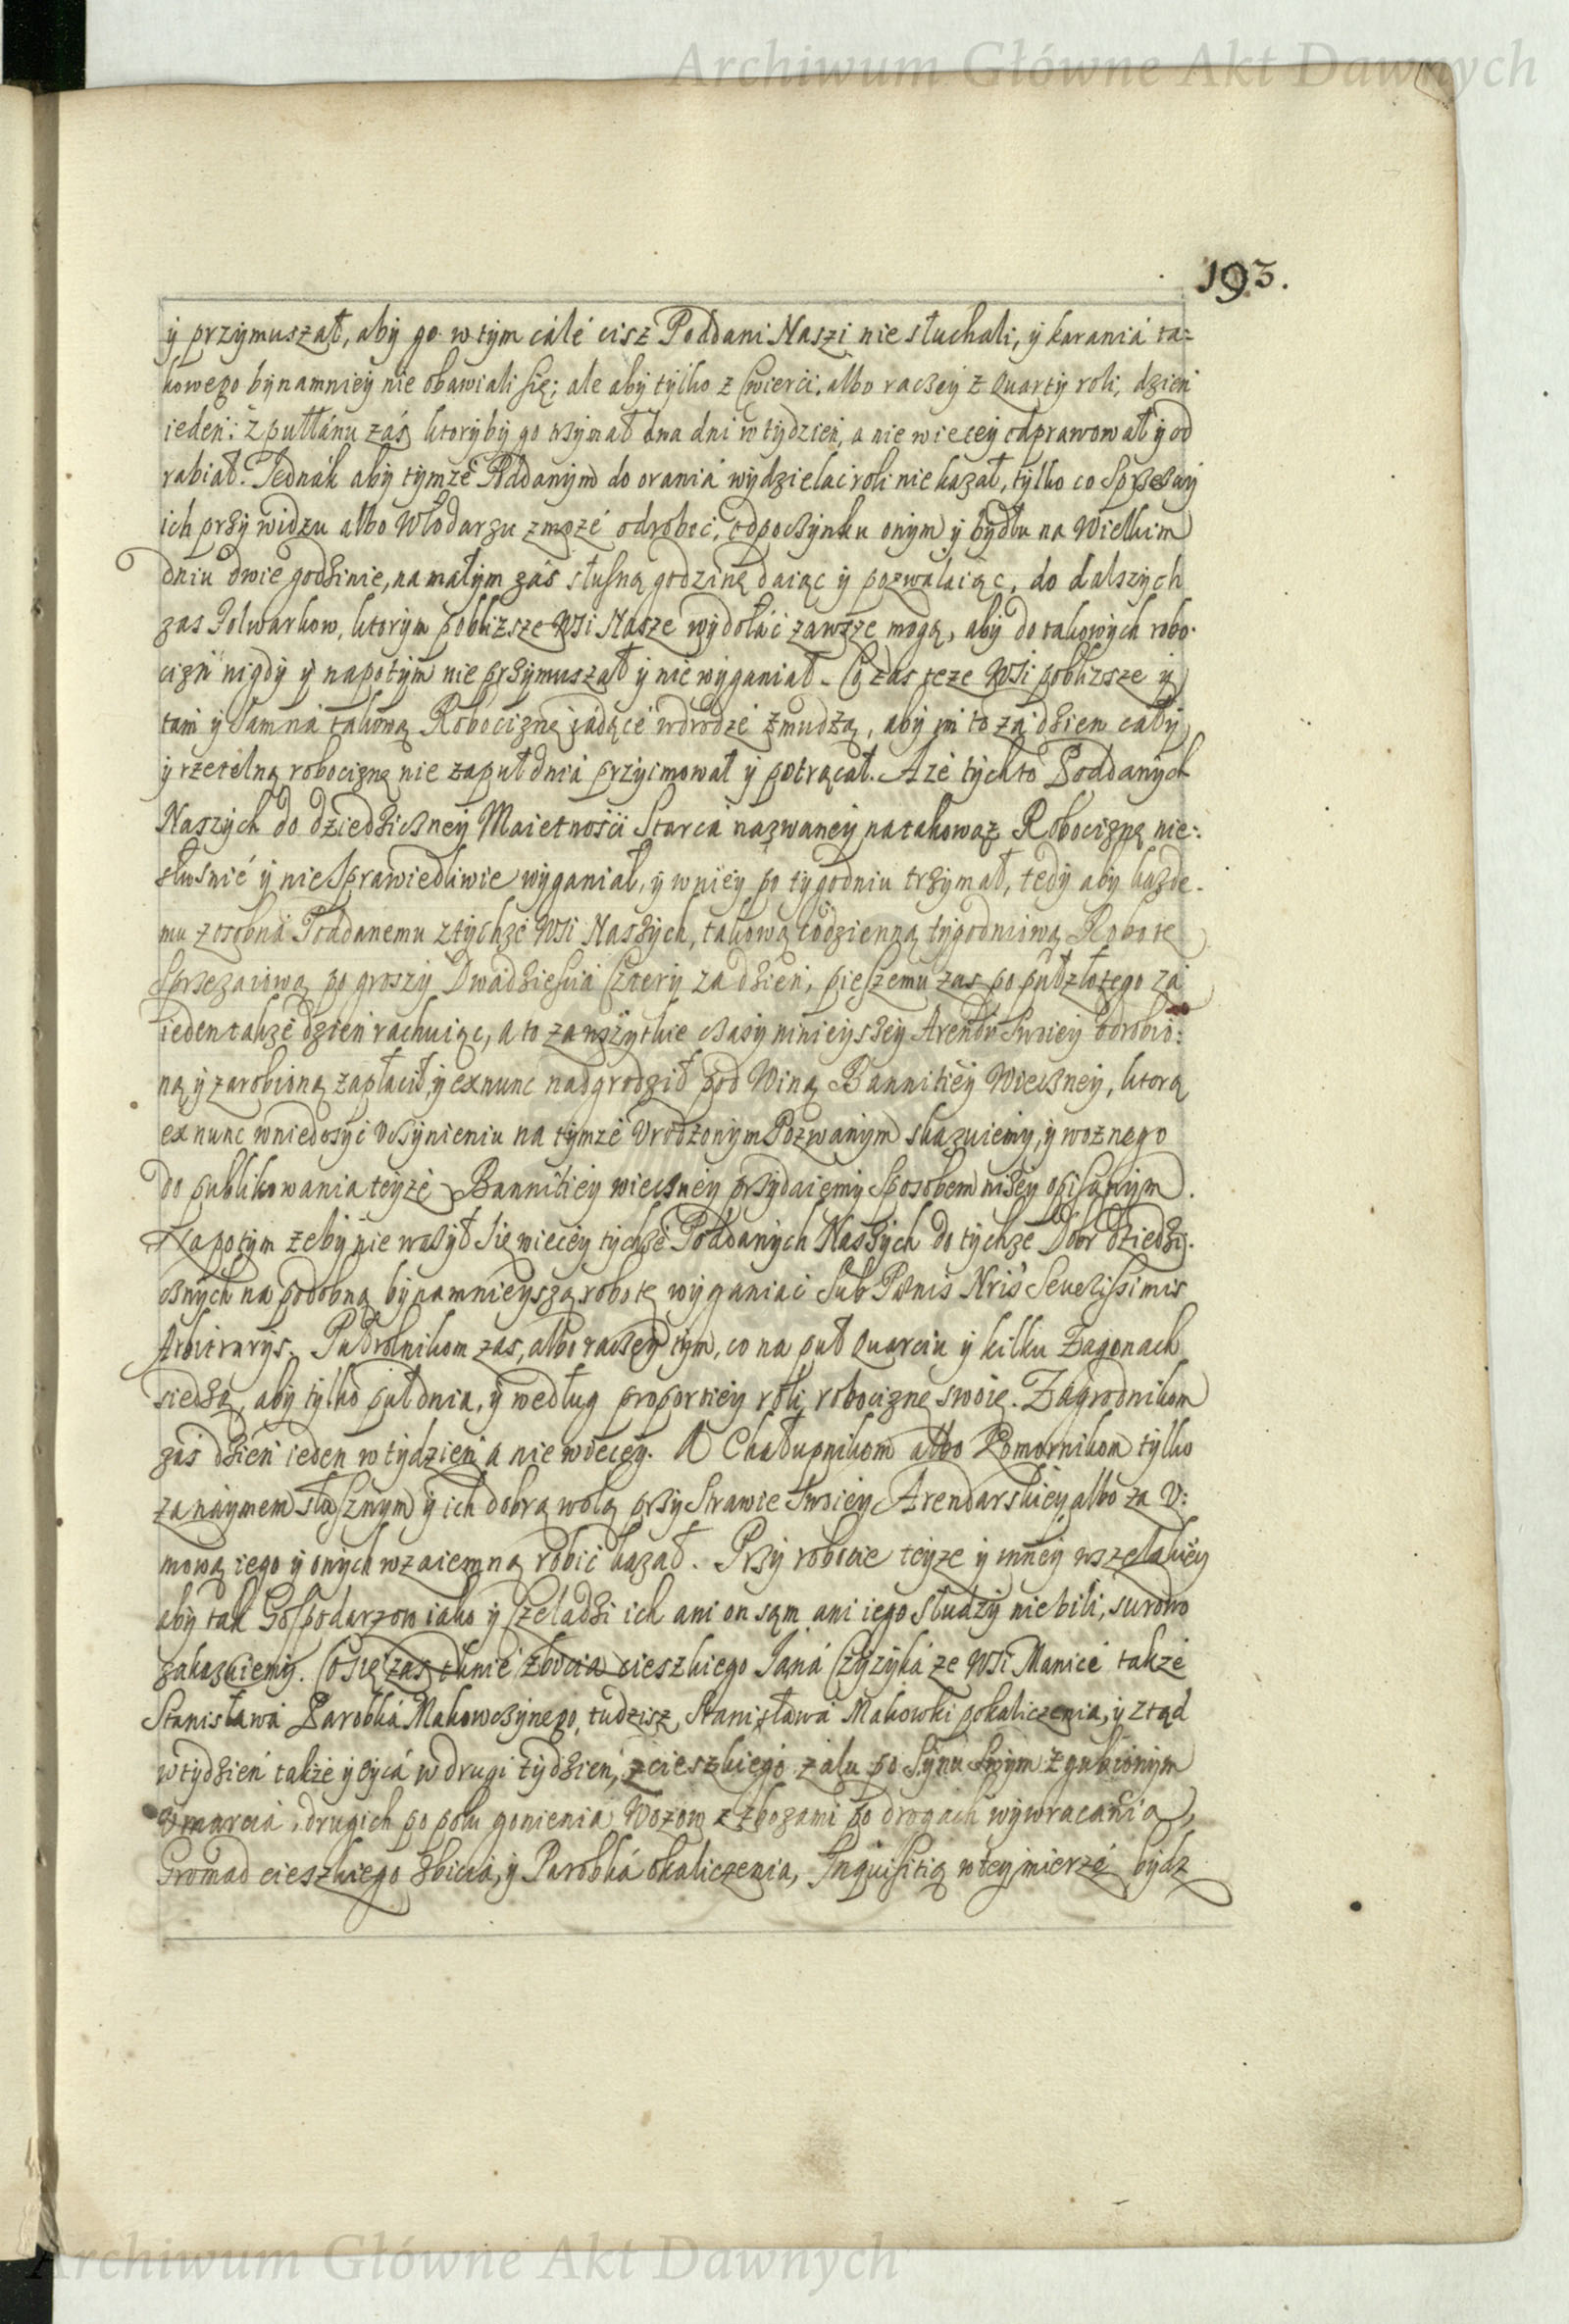 Archiwum Główne Akt Dawnych
193.
ÿ przÿmuszał, abÿ go w tÿm cálé cisz Poddani Naszi nie słuchali, ÿ karaniá ta=
kowego bÿnamnieÿ nie obawiali się; ale abÿ tÿlko z Cwierći, albo raczeÿ z Quartÿ roli, dzień
ieden: z pułłánu záś, ktorÿbÿ go trzÿmał dwa dni w tÿdzień, a nie wiecey odprawował ÿ od
rabiał. Jednák abÿ tÿmże Poddanÿm do orania wÿdzielać roli nie kazał, tÿlko co Sprzężaÿ
ich przÿ widzu albo Włodarzu zmoże odrobić, odpoczÿnku onÿm ÿ bÿdłu na Wielkim
dniu dwie godzinie, na małÿm záś słuszną godzinę daiąc ÿ pozwalaiąc, do dalszÿch
zas Folwarkow, ktorÿm pobliższe Wsi Nasze wÿdołáć zawsze mogą, abÿ do takowÿch robo-
cizń nigdÿ ÿ napotÿm nie przÿmuszał ÿ nie wÿganiał. Co zas teże Wsi pobliższe ÿ
tam ÿ sam ná takową Robociznę jádącé w drodzé zmudzą, abÿ im to zá dzien całÿ
ÿ rzetelną robociznę nie za puł dniá przÿimował ÿ potrącał. A że tÿchto Poddanÿch
Naszÿch do dziedziczneÿ Maietności Starca nazwaneÿ na takowąż Robociznę nie-
słusnié ÿ nie Sprawiedliwie wÿganiał, ÿ w nieÿ po tÿgodniu trzÿmał, tedÿ abÿ każde-
mu z osobná Poddanemu z tÿchże Wsi Naszÿch, takową codzienną tÿgodniową Robotę
Sprzężaiową po groszÿ Dwádzieściá Czterÿ za dzień, pieszemu zas po puł złotego zá
ieden także dzień rachuiąc, a to za wszÿtkie czasÿ ninieÿszeÿ Arendÿ Swoieÿ odrobio-
ną ÿ zarobioną zapłacił, ÿ exnunc nadgrodził pod Winą Bannitieÿ Wieczneÿ, ktorą
ex nunc w niedosÿć uczÿnieniu na tÿmże Urodzonÿm Pozwanÿm skazuiemÿ, ÿ woznego
do publikowania teÿże Bannitieÿ wieczneÿ przÿdaiemÿ sposobem niżeÿ opisanÿm.
Napotÿm żebÿ nie ważÿł się wieceÿ tÿchże Poddanÿch Naszÿch do tÿchże Dobr dziedzi-
cznÿch na podobną bÿnamnieÿszą robotę wÿganiać sub Pænis Nris Severissimis
Arbitrarijs. Pułrolnikom zas, albo raczeÿ tÿm, co na puł Quarciu ÿ kilku Zagonach
siedzą, abÿ tÿlko puł dnia, ÿ według proportieÿ roli, robociznę swoię. Zagrodnikom
záś dzień ieden w tÿdzień a nie wieceÿ. A Chałupnikom albo Komornikom tÿlko
za naÿmem słusznÿm ÿ ich dobrą wolą przÿ Strawie Swoieÿ Arendarskieÿ albo za U-
mową iego ÿ onÿch wzaiemną robić kazał. Przÿ robocie teÿże ÿ inneÿ wszelakieÿ
abÿ tak Gospodarzow iako ÿ Czeladzi ich ani on sąm ani iego słudzÿ nie bili, surowo
zakazuiemÿ. Co się zas tknie zbicia cieszkiego Jáná Czÿżÿká ze Wsi Manice także
Stanisławá Parobká Makowczÿnego, tudzisz Stanisławá Makowki pokaliczenia, ÿ ztąd
w tÿdzień także ÿ Oÿcá w drugi tÿdzień, z cieszkiego żalu po Sÿnu Swÿm zgubionÿm
Umarciá, drugich po polu gonienia, Wozow z zbozami po drogach wÿwracania,
Gromad cieszkiego zbicia, ÿ Parobká okaliczenia, Inquisitią w teÿ mierze bÿdz
Archiwum Główne Akt Dawnych